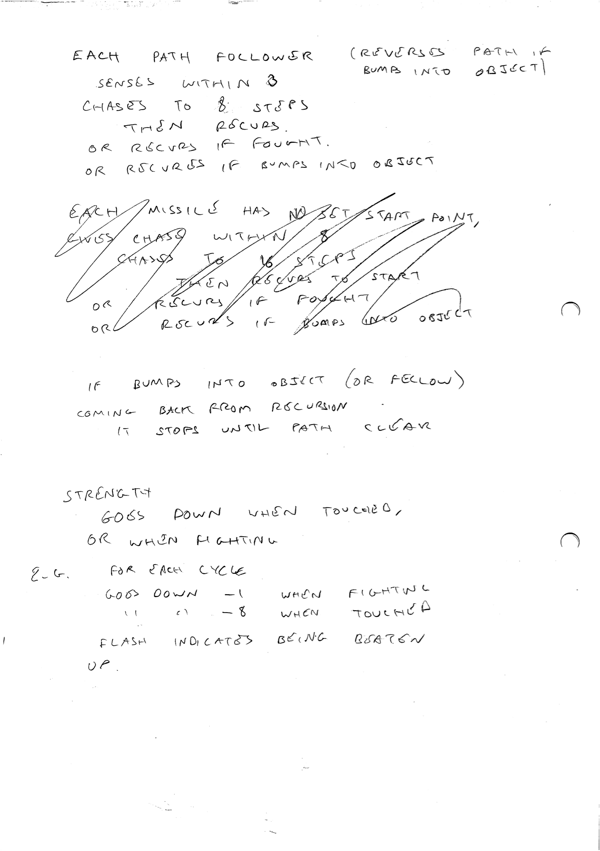 EACH PATH FOLLOWER (REVERSES PATH IF
BUMPS INTO OBJECT)
SENSES WITHIN 3
CHASES TO 8 STEPS
THEN RECURS.
OR RECURS IF FOUGHT.
OR RECURES IF BUMPS INTO OBJECT
EACH MISSILE HAS NO SET START POINT,
GIVES CHASE WITHIN 8
CHASES TO 16 STEPS
THEN RECURS TO START
OR RECURS IF FOUGHT
OR RECURS IF BUMPS INTO OBJECT
IF BUMPS INTO OBJECT (OR FELLOW)
COMING BACK FROM RECURSION
IT STOPS UNTIL PATH CLEAR
STRENGTH
GOES DOWN WHEN TOUCHED,
OR WHEN FIGHTING
E-G. FOR EACH CYCLE
GOES DOWN -1 WHEN FIGHTING
" " -8 WHEN TOUCHED
FLASH INDICATES BEING BEATEN
UP.